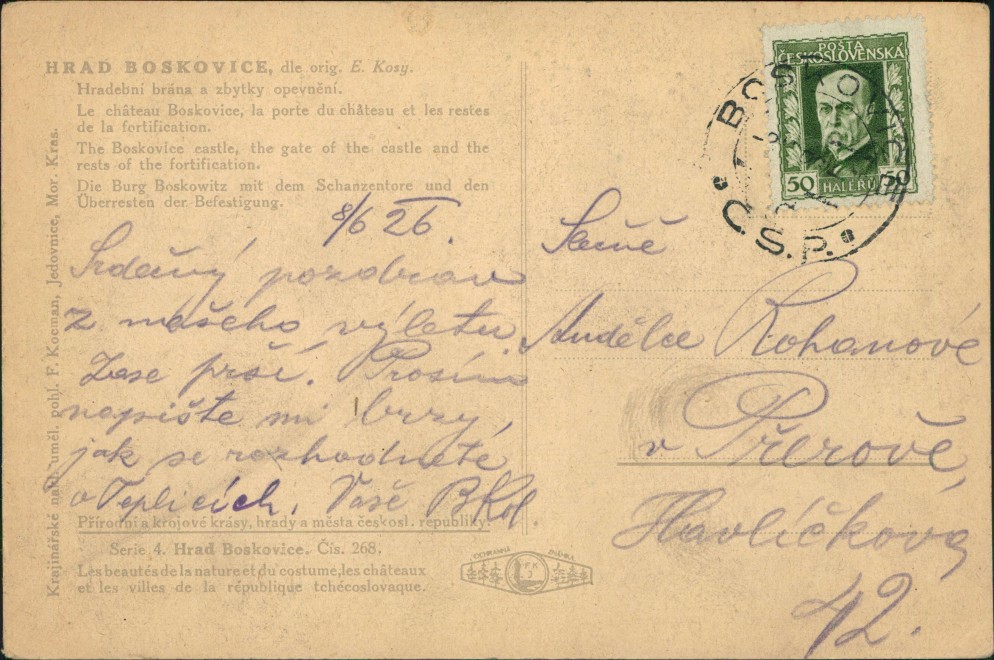 HRAD BOSKOVICE, dle orig. E. Kosy.
Hradební brána a zbytky opevnění.
Le château Boskovice, la porte du château et les restes
de la fortification.
The Boskovice castle, the gate of the castle and the
rests of the fortification.
Die Burg Boskowitz mit dem Schanzentore und den
Überresten der Befestigung.
8/6 26.
Srdečný pozdrav
z našeho výletu.
Zase prší. Prosím
napište mi brzy,
jak se rozhodnete
o Teplicích. Vaše
Přírodní a krojové krásy, hrady a města českosl. republiky.
Serie 4. Hrad Boskovice. Čís. 268.
Les beautés de la nature et du costume, les châteaux
et les villes de la république tchécoslovaque.
Krajinářské nakl. uměl. pohl. F. Kocman, Jedovnice, Mor. Kras.
OCHRANNÁ ZNÁMKA
FK
J
POŠTA
ČESKOSLOVENSKÁ
50 HALÉŘŮ 50
BOSKOVICE
Č.S.P.
Andělce Rohanové
v Přerově,
Havlíčkova
42.